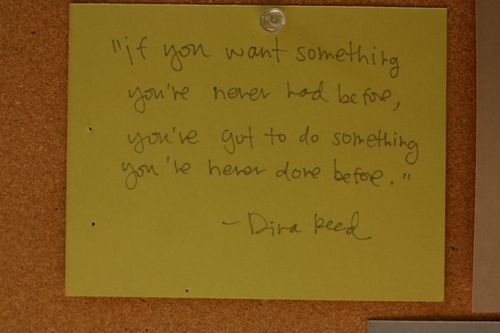 "if you want something
you're never had before,
you've got to do something
you've never done before."
- Dira Reed